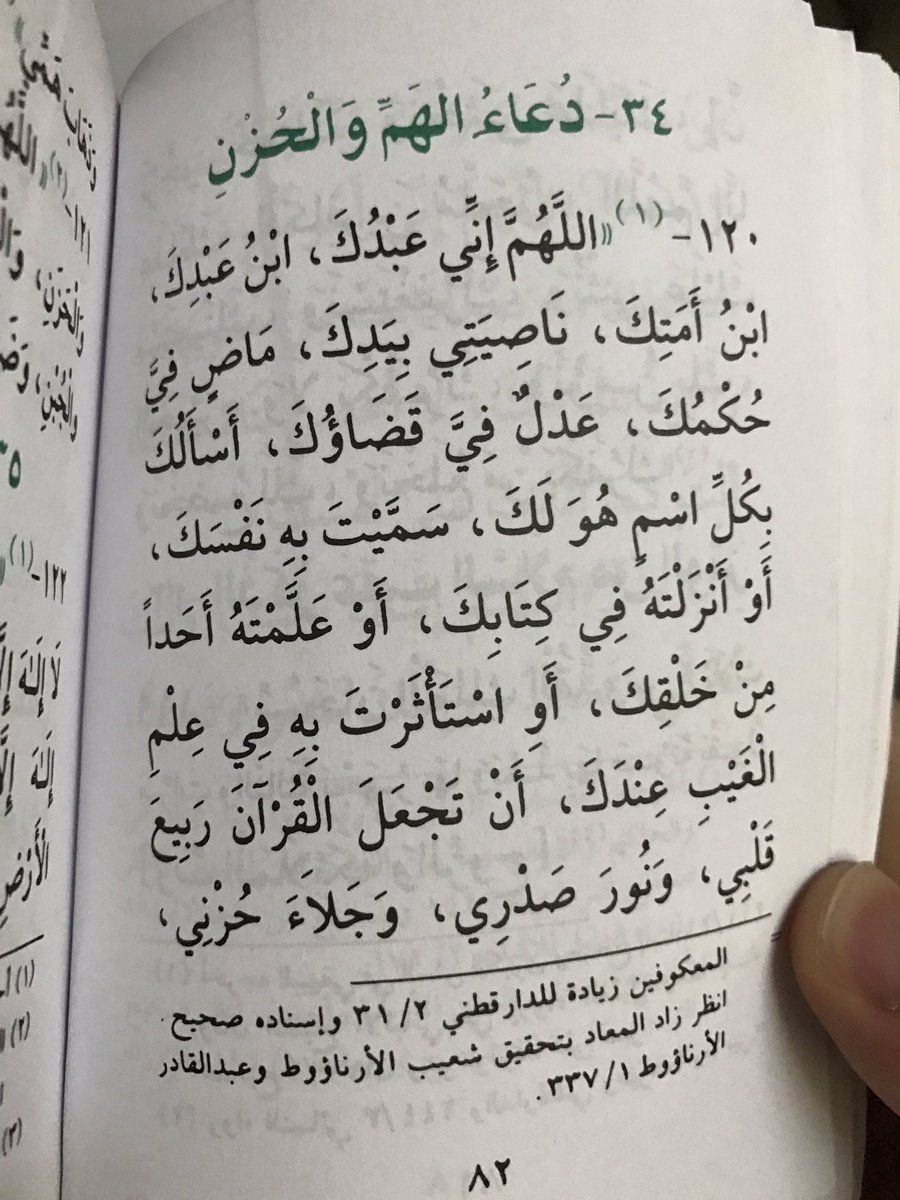 ٣٤- دُعَاءُ الهَمِّ وَالْحُزْنِ
١٢٠-(١) «اللَّهُمَّ إِنِّي عَبْدُكَ، ابْنُ عَبْدِكَ،
ابْنُ أَمَتِكَ، نَاصِيَتِي بِيَدِكَ، مَاضٍ فِيَّ
حُكْمُكَ، عَدْلٌ فِيَّ قَضَاؤُكَ، أَسْأَلُكَ
بِكُلِّ اسْمٍ هُوَ لَكَ، سَمَّيْتَ بِهِ نَفْسَكَ،
أَوْ أَنْزَلْتَهُ فِي كِتَابِكَ، أَوْ عَلَّمْتَهُ أَحَداً
مِنْ خَلْقِكَ، أَوِ اسْتَأْثَرْتَ بِهِ فِي عِلْمِ
الْغَيْبِ عِنْدَكَ، أَنْ تَجْعَلَ الْقُرْآنَ رَبِيعَ
قَلْبِي، وَنُورَ صَدْرِي، وَجَلَاءَ حُزْنِي،
المعكوفين زيادة للدارقطني ٣١/٢ وإسناده صحيح.
انظر زاد المعاد بتحقيق شعيب الأرناؤوط وعبدالقادر
الأرناؤوط ٣٣٧/١.
٨٢
١٢١-
(٢)
وَالْحَزَنِ،
١٢٢-(١)
لَا إِلَهَ
إِلَهَ
الْأَرْضِ
(١)
(٢)
(٣)